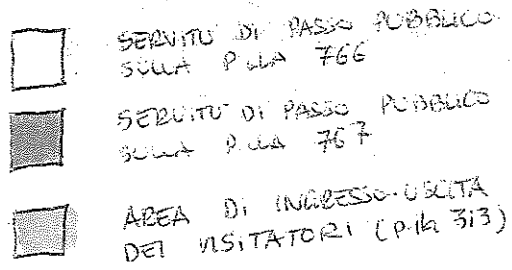 SERVITU' DI PASSO PUBBLICO
SULLA P.LLA 766
SERVITU' DI PASSO PUBBLICO
SULLA P.LLA 767
AREA DI INGRESSO-USCITA
DEI VISITATORI (p.lla 313)